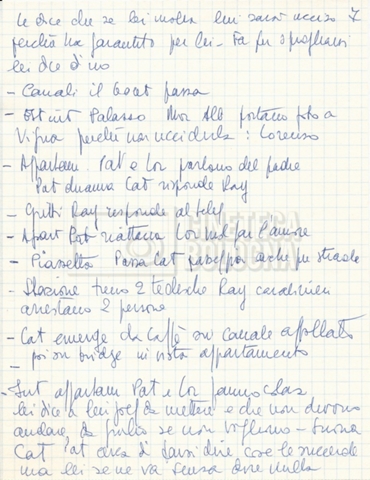 le dice che se lei molla lui sarà ucciso
perché ha garantito per lei - Fa per spogliarsi
lei dice di no
- Canali il boat passa
- Est int Palazzo Mor Alb portano foto a
Vigna perché non ucciderla : Lorenzo
- Apartam. Pat e Lor parlano del padre
Pat chiama Cat risponde Ray
- Gritti Ray risponde al telef
- Apart Pat riattacca Lor vuol far l'amore
- Piazzetta Passa Cat anche per strade
- Stazione treno 2 tedesche Ray carabinieri
arrestano 2 persone
- Cat emerge da Caffè su canale affollato
- poi su bridge in vista appartamento
- Int appartam Pat e Lor fanno colaz
lei dice a lui da mettere e che non devono
andare da Giulio se non vogliono - Suona
Cat Pat cerca di farsi dire cosa le succede
ma lei se ne va senza dire nulla
CINETECA
BOLOGNA